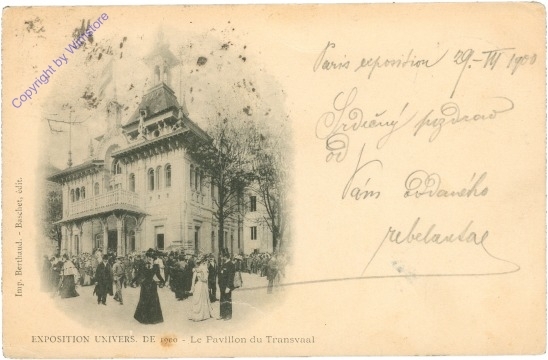 Copyright by Wildstore
Paris exposition 29.-III 1900
Srdečný pozdrav
od
Vám oddaného
Imp. Berthaud. - Baschet, édit.
EXPOSITION UNIVERS. DE 1900 - Le Pavillon du Transvaal